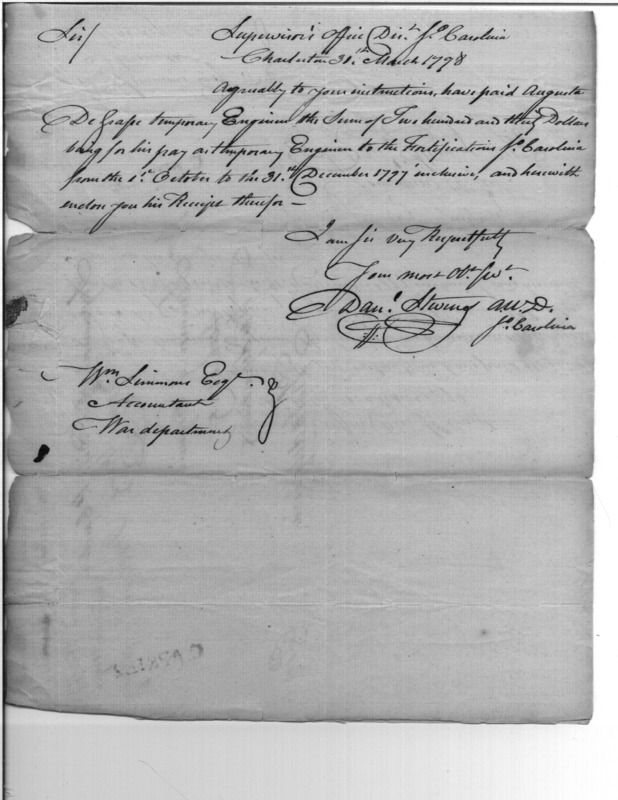 Sir/ Supervisor's Office Dist. So. Carolina
Charleston 31st March 1798
Agreeably to your instructions, have paid Augusta
De Grasse temporary Engineer the Sum of Two hundred and thirty Dollars
being for his pay as temporary Engineer to the Fortifications So. Carolina
from the 1st October to the 31st December 1797 inclusive, and herewith
enclose you his Receipt therefor —
I am Sir Very Respectfully
Your most Obt. Servt.
Danl. Stevens A.W.D.
So. Carolina
Wm. Simmons Esqr.
Accountant
War department